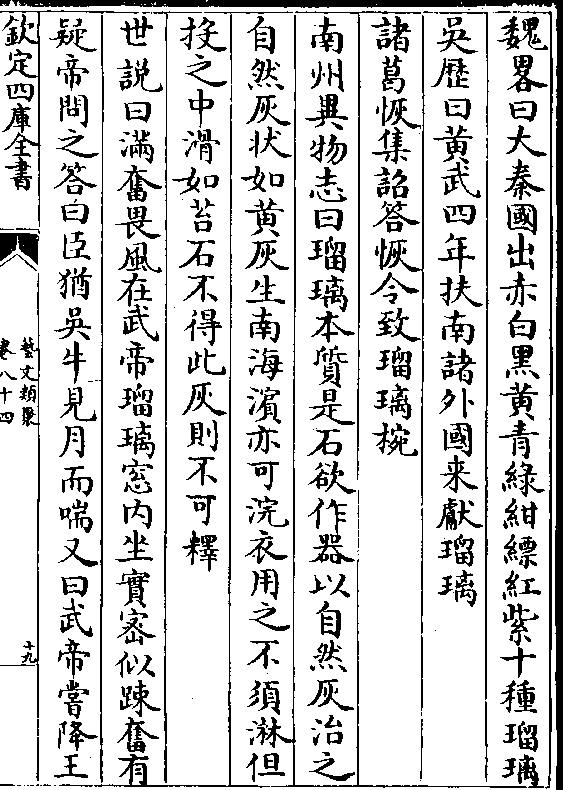 魏畧曰大秦國出赤白黑黄青綠紺縹紅紫十種瑠璃
吳歷曰黄武四年扶南諸外國来獻瑠璃
諸葛恢集詔答恢今致瑠璃椀
南州異物志曰瑠璃本質是石欲作器以自然灰治之
自然灰状如黄灰生南海濵亦可浣衣用之不須淋但
投之中滑如苔石不得此灰則不可釋
世説曰滿奮畏風在武帝瑠璃窓内坐實宻似踈奮有
疑帝問之答曰臣猶吳牛見月而喘又曰武帝嘗降王
欽定四庫全書
藝文類聚
卷八十四
十九